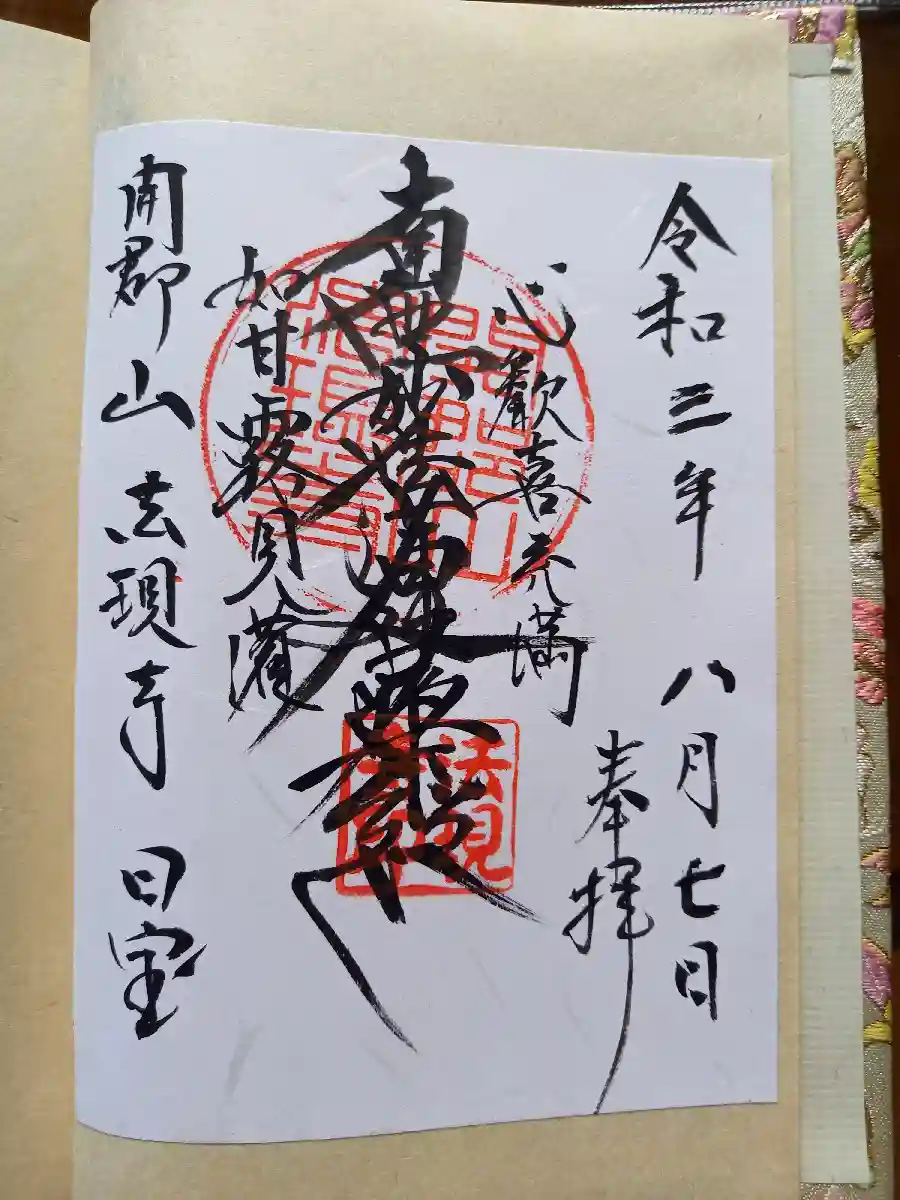 令和三年 八月七日
奉拝
心歓喜充満
南無妙法蓮華経
如甘露見灌
郡山 法現寺 日宝